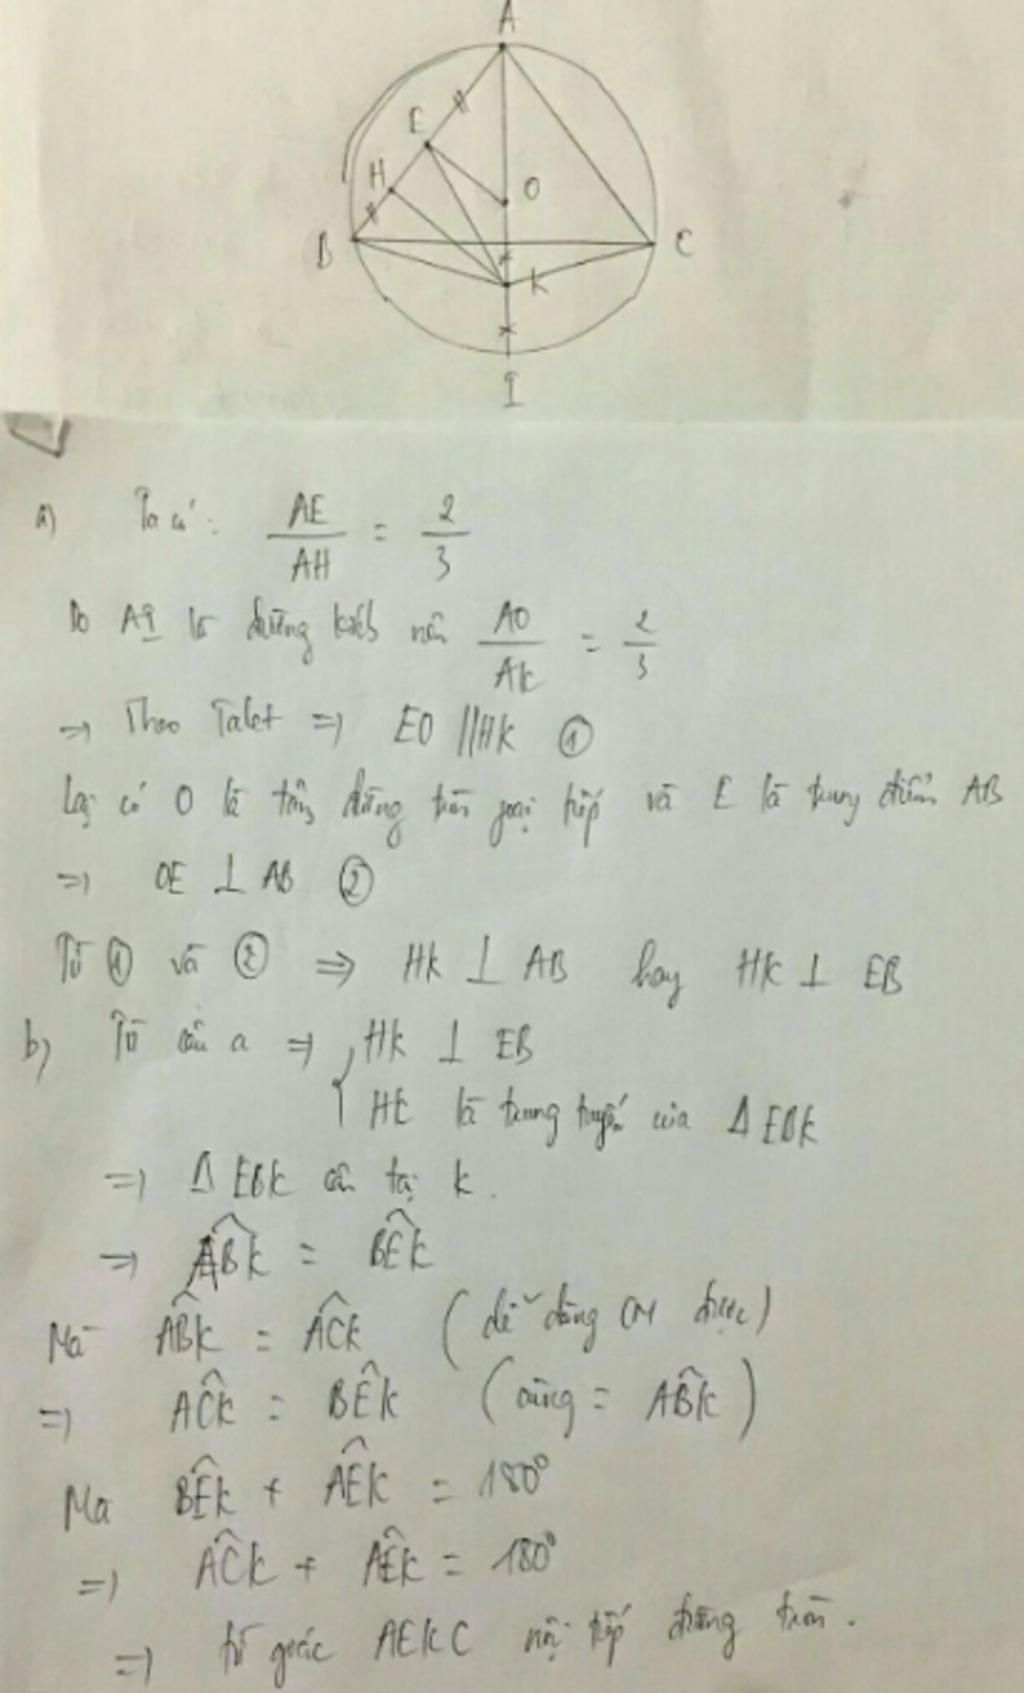 A
E
H
O
B
C
K
I
a) Ta có: AE/AH = 2/3
Do AI là đường kính nên AO/AK = 2/3
=> Theo Talet => EO // HK ①
Lại có O là tâm đường tròn ngoại tiếp và E là trung điểm AB
=> OE ⊥ AB ②
Từ ① và ② => HK ⊥ AB hay HK ⊥ EB
b) Từ câu a => { HK ⊥ EB
HK là trung tuyến của Δ EBK
=> Δ EBK cân tại K.
=> ABK̂ = BEK̂
Mà ABK̂ = ACK̂ (dễ dàng CM được)
=> ACK̂ = BEK̂ (cùng = ABK̂)
Mà BEK̂ + AEK̂ = 180°
=> ACK̂ + AEK̂ = 180°
=> tứ giác AEKC nội tiếp đường tròn.